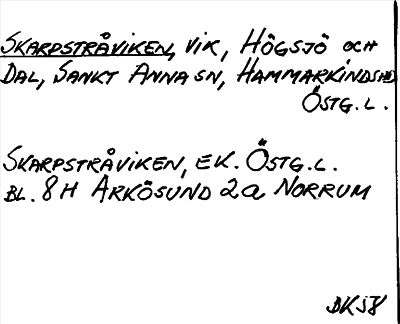 SKARPSTRÅVIKEN, VIK, HÖGSJÖ OCH
DAL, SANKT ANNA SN, HAMMARKINDS HD
ÖSTG. L.
SKARPSTRÅVIKEN, EK. ÖSTG. L.
BL. 8H ARKÖSUND 2a NORRUM